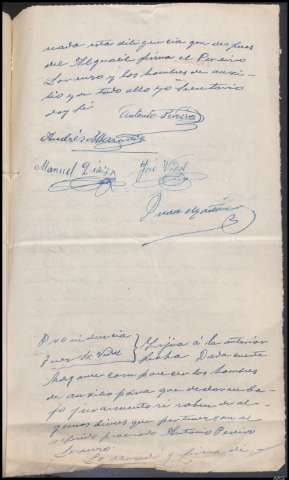 nada esta diligencia que despues
del Alguacil firma el Pereiro
Lorenzo y los hombres de auxi-
lio y de todo ello yo Secretario
doy fé
Antonio Pereiro
Andrés
Manuel Diaz José Vidal
Providencia
Juez Sr Vidal
Lejiva á la anterior
fecha Dada cuenta
hagame comparecer los hombres
de auxilio para que declaren ba-
jo juramento si saben de al-
gunos bienes que pertenezcan al
procesado Antonio Pereiro
Lorenzo
Lo acordó y firma de